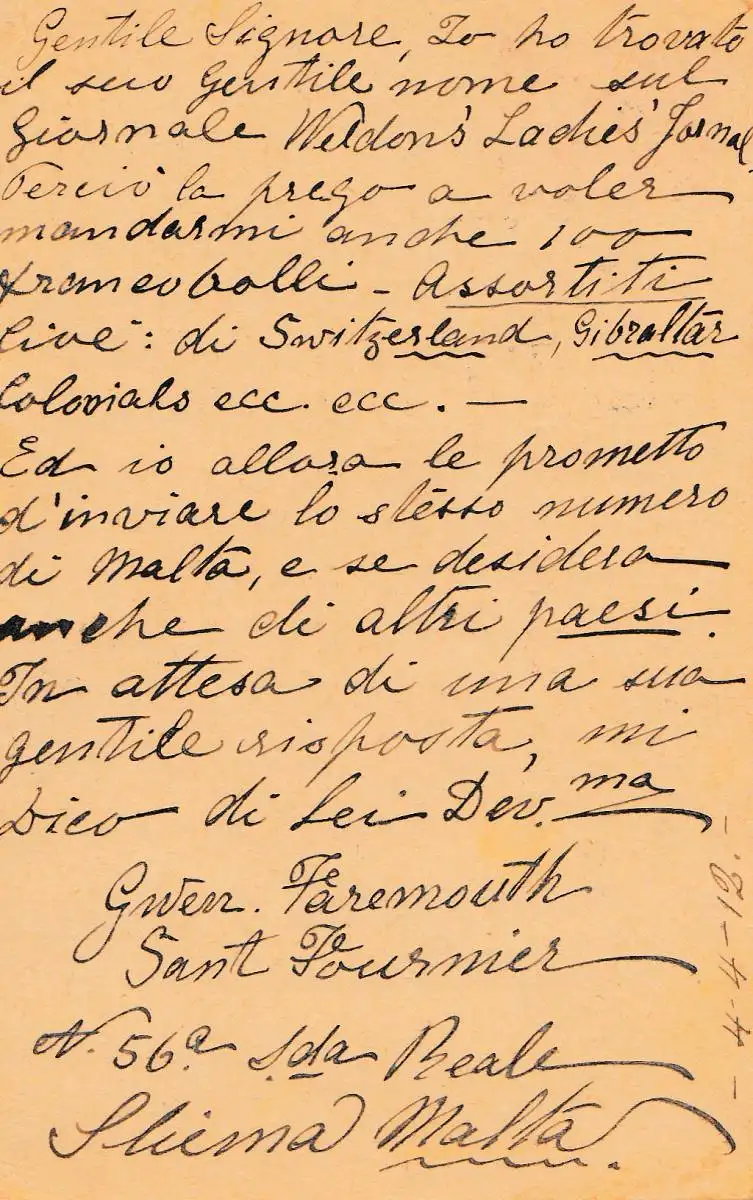 Gentile Signore, Io ho trovato
il suo gentile nome sul
Giornale Weldon's Ladies' Jornal,
Perciò la prego a voler
mandarmi anche 100
francobolli - Assortiti
Cioè: di Switzerland, Gibraltar
Colonials ecc. ecc. —
Ed io allora le prometto
d'inviare lo stesso numero
di Malta, e se desidera
anche di altri paesi.
In attesa di una sua
gentile risposta, mi
Dico di Lei Dev.ma
Gwen. Faremouth
Sant Fournier
N. 56a. S.da Reale
Sliema Malta.
- 4-4-12. -